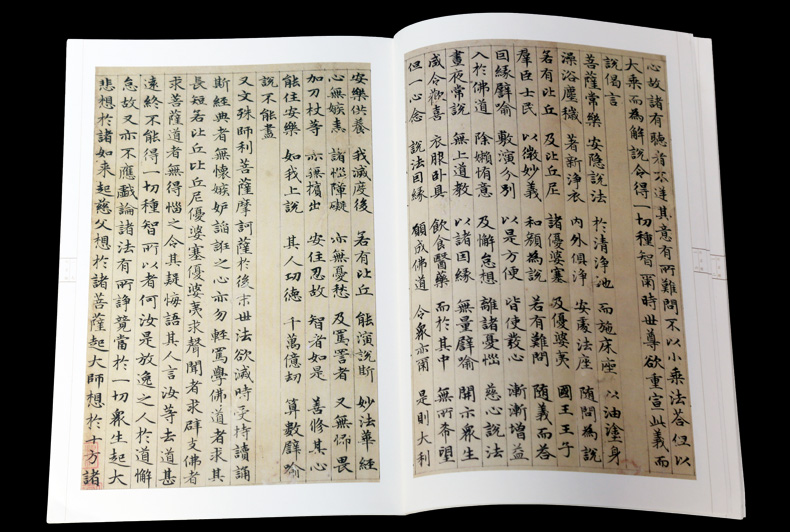 心故諸有聽者不逆其意有所難問不以小乘法荅但以
大乘而為解說令得一切種智爾時世尊欲重宣此義而
說偈言
菩薩常樂 安隱說法 於清淨池 而施床座 以油塗身
澡浴塵穢 著新淨衣 內外俱淨 安處法座 隨問為說
若有比丘 及比丘尼 諸優婆塞 及優婆夷 國王王子
羣臣士民 以微妙義 和顏為說 若有難問 隨義而荅
因緣譬喻 敷演分別 以是方便 皆使發心 漸漸增益
入於佛道 除嬾惰意 及懈怠想 離諸憂惱 慈心說法
晝夜常說 無上道教 以諸因緣 無量譬喻 開示眾生
咸令歡喜 衣服臥具 飲食醫藥 而於其中 無所希望
但一心念 說法因緣 願成佛道 令眾亦爾 是則大利
安樂供養 我滅度後 若有比丘 能演說斯 妙法華經
心無嫉恚 諸惱障礙 亦無憂愁 及罵詈者 又無怖畏
加刀杖等 亦無擯出 安住忍故 智者如是 善修其心
能住安樂 如我上說 其人功德 千萬億劫 算數譬喻
說不能盡
又文殊師利菩薩摩訶薩於後末世法欲滅時受持讀誦
斯經典者無懷嫉妒諂誑之心亦勿輕罵學佛道者求其
長短若比丘比丘尼優婆塞優婆夷求聲聞者求辟支佛者
求菩薩道者無得惱之令其疑悔語其人言汝等去道甚
遠終不能得一切種智所以者何汝是放逸之人於道懈
怠故又亦不應戲論諸法有所諍競當於一切眾生起大
悲想於諸如來起慈父想於諸菩薩起大師想於十方諸